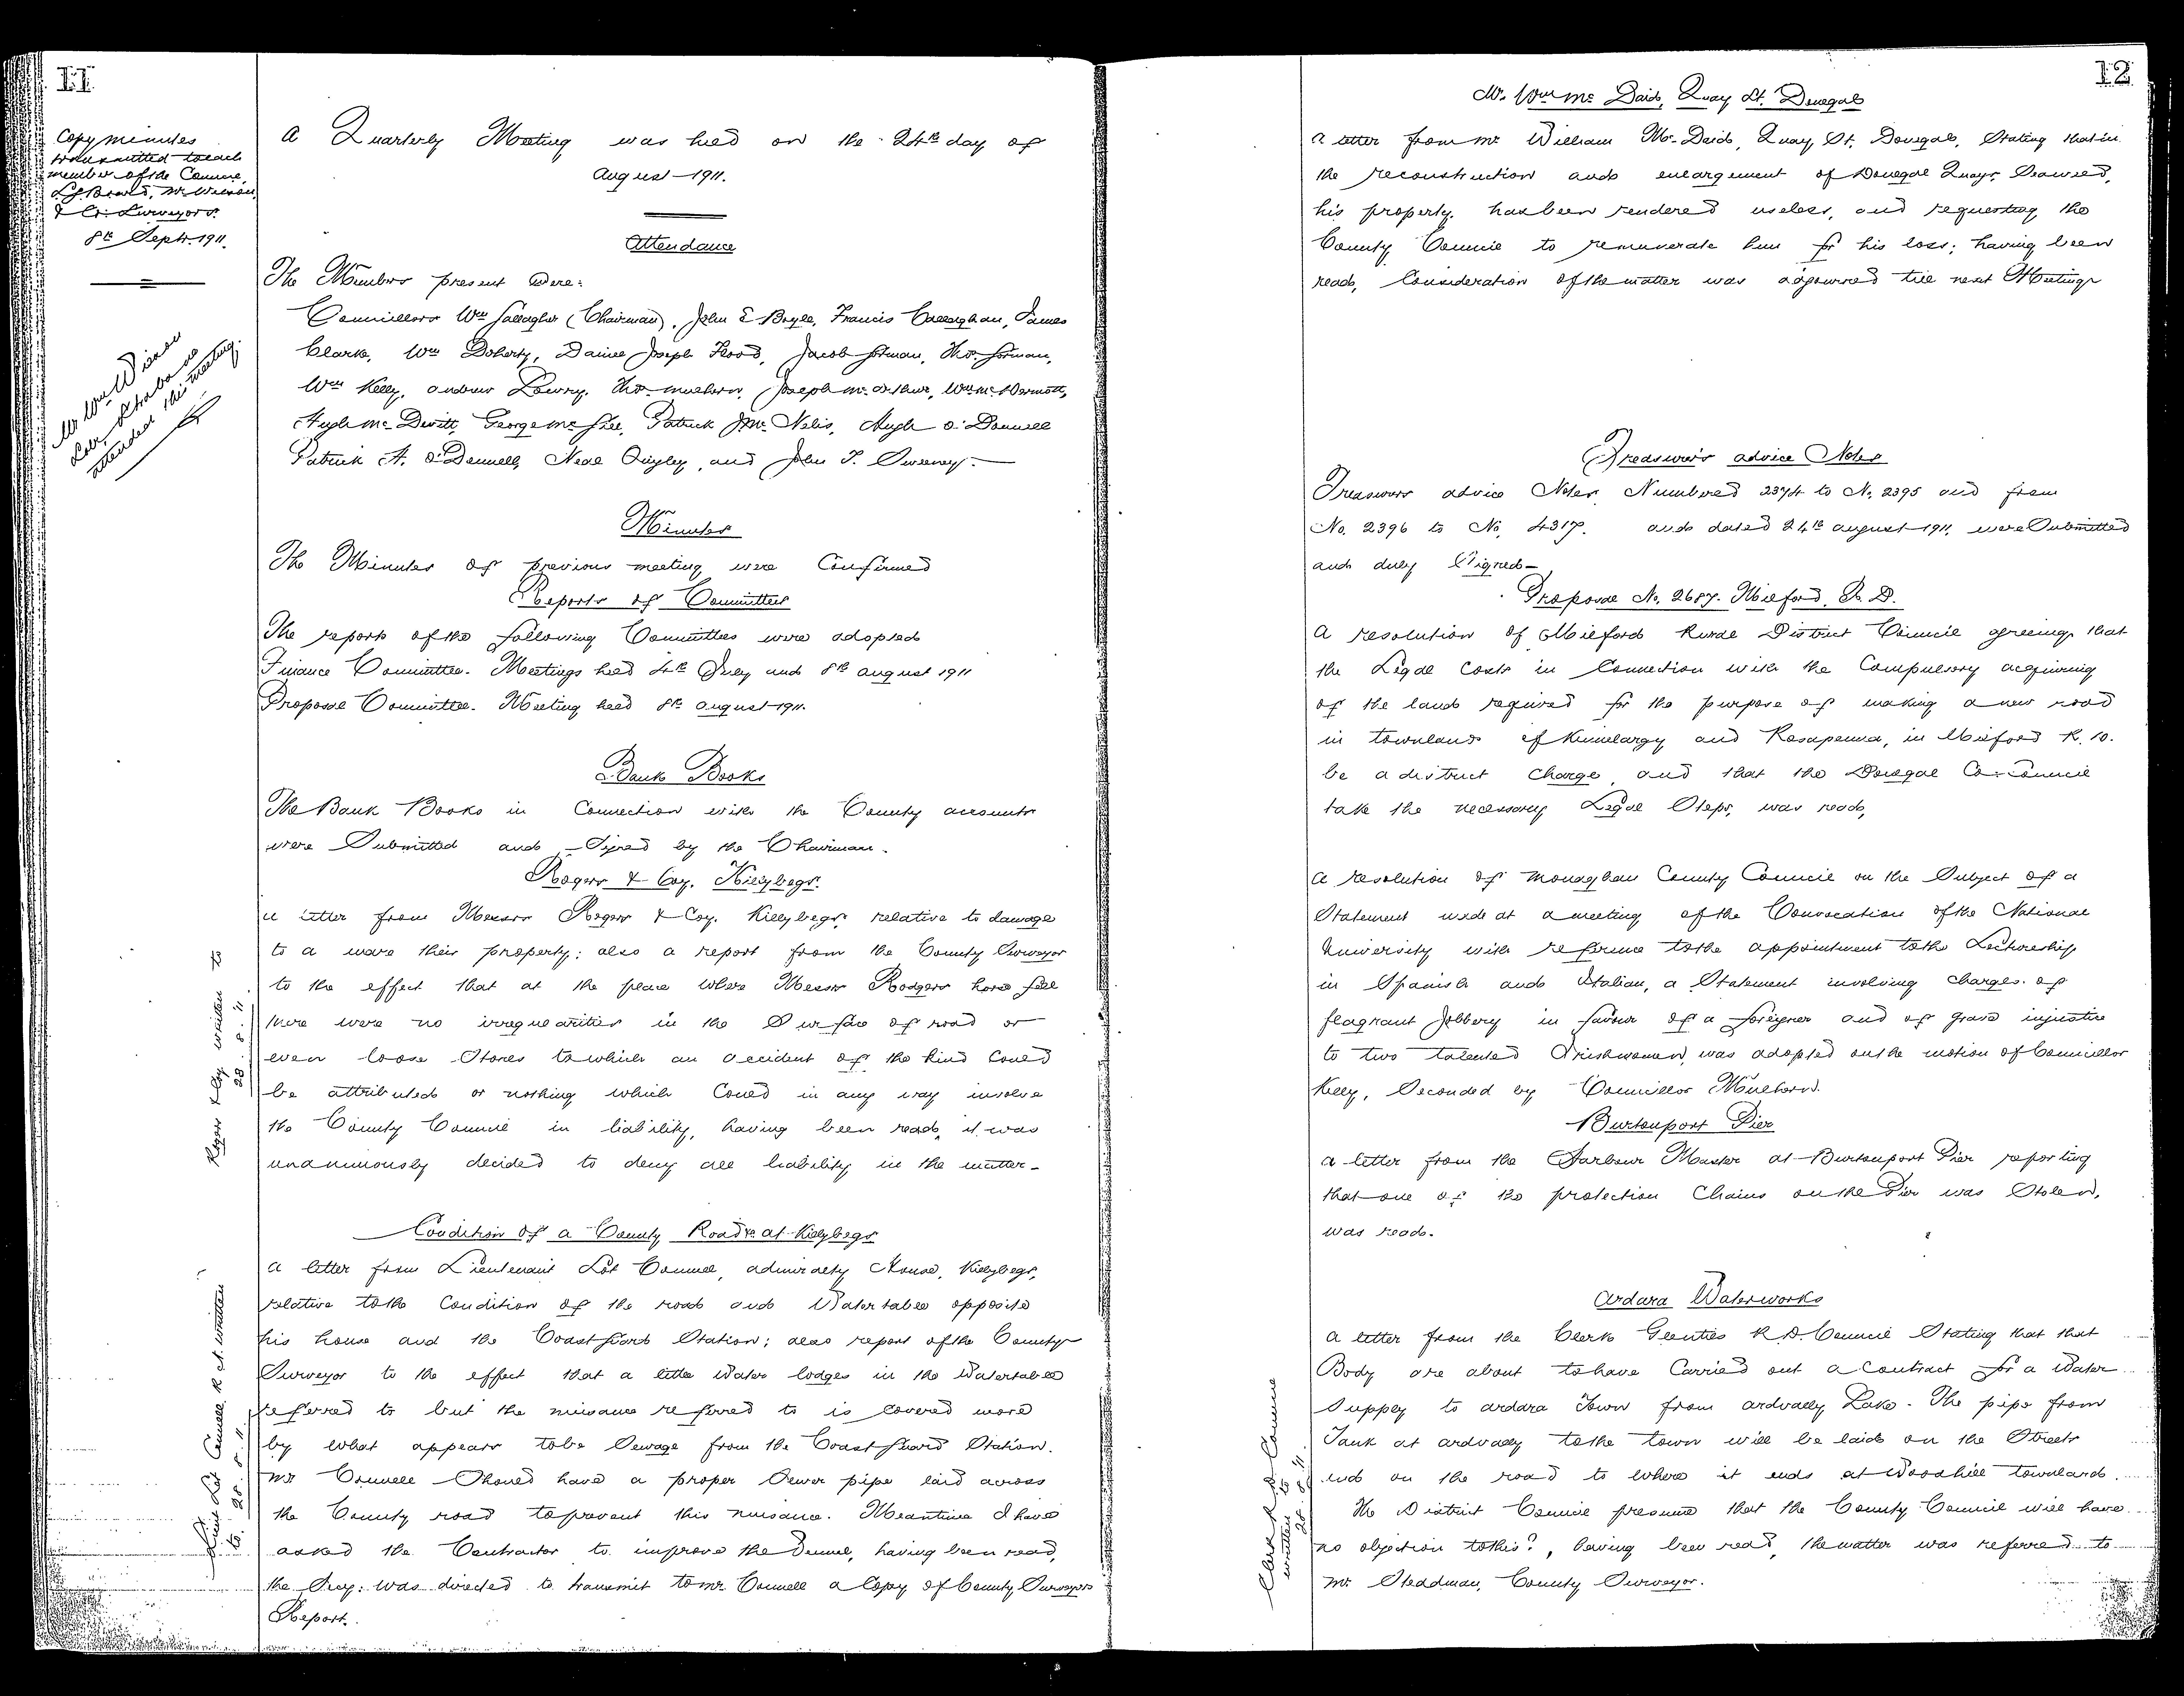 11
Copy minutes
transmitted to each
member of the Council,
& Co. Surveyors.
8th Sept. 1911.
attended this meeting
A Quarterly Meeting was held on the 24th day of
August 1911.
Attendance
The Members present were:
Councillors Wm Gallagher (Chairman), John E Boyle, Francis Callaghan, James
Clarke, Wm Doherty, Daniel Joseph Flood, Jacob Forman, Thos. Forman,
Wm Kelly, Andrew Lowry, Thos Mulhern, Joseph Mc Arthur, Wm Mc Dermott,
Hugh Mc Devitt, George Mc Gee, Patrick J Mc Nelis, Hugh O'Donnell
Patrick A. O'Donnell, Neal Quigley, and John T. Sweeney.
Minutes
The Minutes of previous meeting were Confirmed
Reports of Committees
The reports of the following Committees were adopted
Finance Committee. Meetings held 4th July and 8th August 1911
Proposal Committee. Meeting held 8th August 1911.
Bank Books
The Bank Books in Connection with the County accounts
were Submitted and Signed by the Chairman.
Rogers & Coy. Killybegs.
Rogers & Coy written to
28. 8. 11
A letter from Messrs Rogers & Coy. Killybegs, relative to damage
to a mare their property; also a report from the County Surveyor
to the effect that at the place where Messrs Rodgers horse fell
there were no irregularities in the Surface of road or
even loose Stones to which an accident of the kind Could
be attributed or nothing which Could in any way involve
the County Council in liability, having been read, it was
unanimously decided to deny all liability in the matter-
Condition of a County Road &c at Killybegs
Lieut Lot Connell R.N. written
to. 26. 8. 11
A letter from Lieutenant Lot Connell, Admiralty House, Killybegs,
relative to the Condition of the road and Watertable opposite
his house and the Coast Guard Station; also report of the County
Surveyor to the effect that a little Water lodges in the Watertable
referred to but the nuisance referred to is Covered more
by what appears to be Sewage from the Coast Guard Station.
Mr Connell Should have a proper Sewer pipe laid across
the County road to prevent this nuisance. Meantime I have
asked the Contractor to improve the Tunnel, having been read,
the Secy: was directed to transmit to Mr Connell a Copy of County Surveyors
Report.
12
Mr. Wm Mc Daid, Quay St. Donegal
A letter from Mr William Mc Daid, Quay, St. Donegal, Stating that in
the reconstruction and enlargement of Donegal Quay, Seaweed,
his property, has been rendered useless, and requesting the
County Council to remunerate him for his loss; having been
read, Consideration of the matter was adjourned till next Meeting
Treasurer's advice Notes
Treasurers advice Notes Numbered 2374 to No. 2395 and from
No. 2396 to No. 4317. and dated 24th August 1911, were Submitted
and duly Signed-
Proposal No. 2687. Milford, R. D.
A resolution of Milford Rural District Council agreeing that
the Legal Costs in Connection with the Compulsory acquiring
of the land required for the purpose of making a new road
in townlands of Kinnelargy and Rosapenna, in Milford R. D.
be a district Charge and that the Donegal Co. Council
take the necessary Legal Steps, was read,
A resolution of Monaghan County Council on the Subject of a
Statement made at a meeting of the Convocation of the National
University with reference to the appointment to the Lectureship
in Spanish and Italian, a Statement involving Charges of
flagrant Jobbery in favour of a foreigner and of grave injustice
to two talented Irishwomen, was adopted on the motion of Councillor
Kelly, Seconded by Councillor Mulhern.
Burtonport Pier
A letter from the Harbour Master at Burtonport Pier reporting
that one of the protection Chains on the Pier was Stolen,
was read.
Ardara Waterworks
A letter from the Clerk Glenties R D. Council Stating that that
Body are about to have Carried out a Contract for a Water
Supply to Ardara Town from Ardvally Lake. The pipe from
Tank at Ardvally to the town will be laid on the Streets
and on the road to where it ends at Woodhill townland.
The District Council presume that the County Council will have
no objection to this?, having been read, the matter was referred to
Mr. Steadman, County Surveyor.